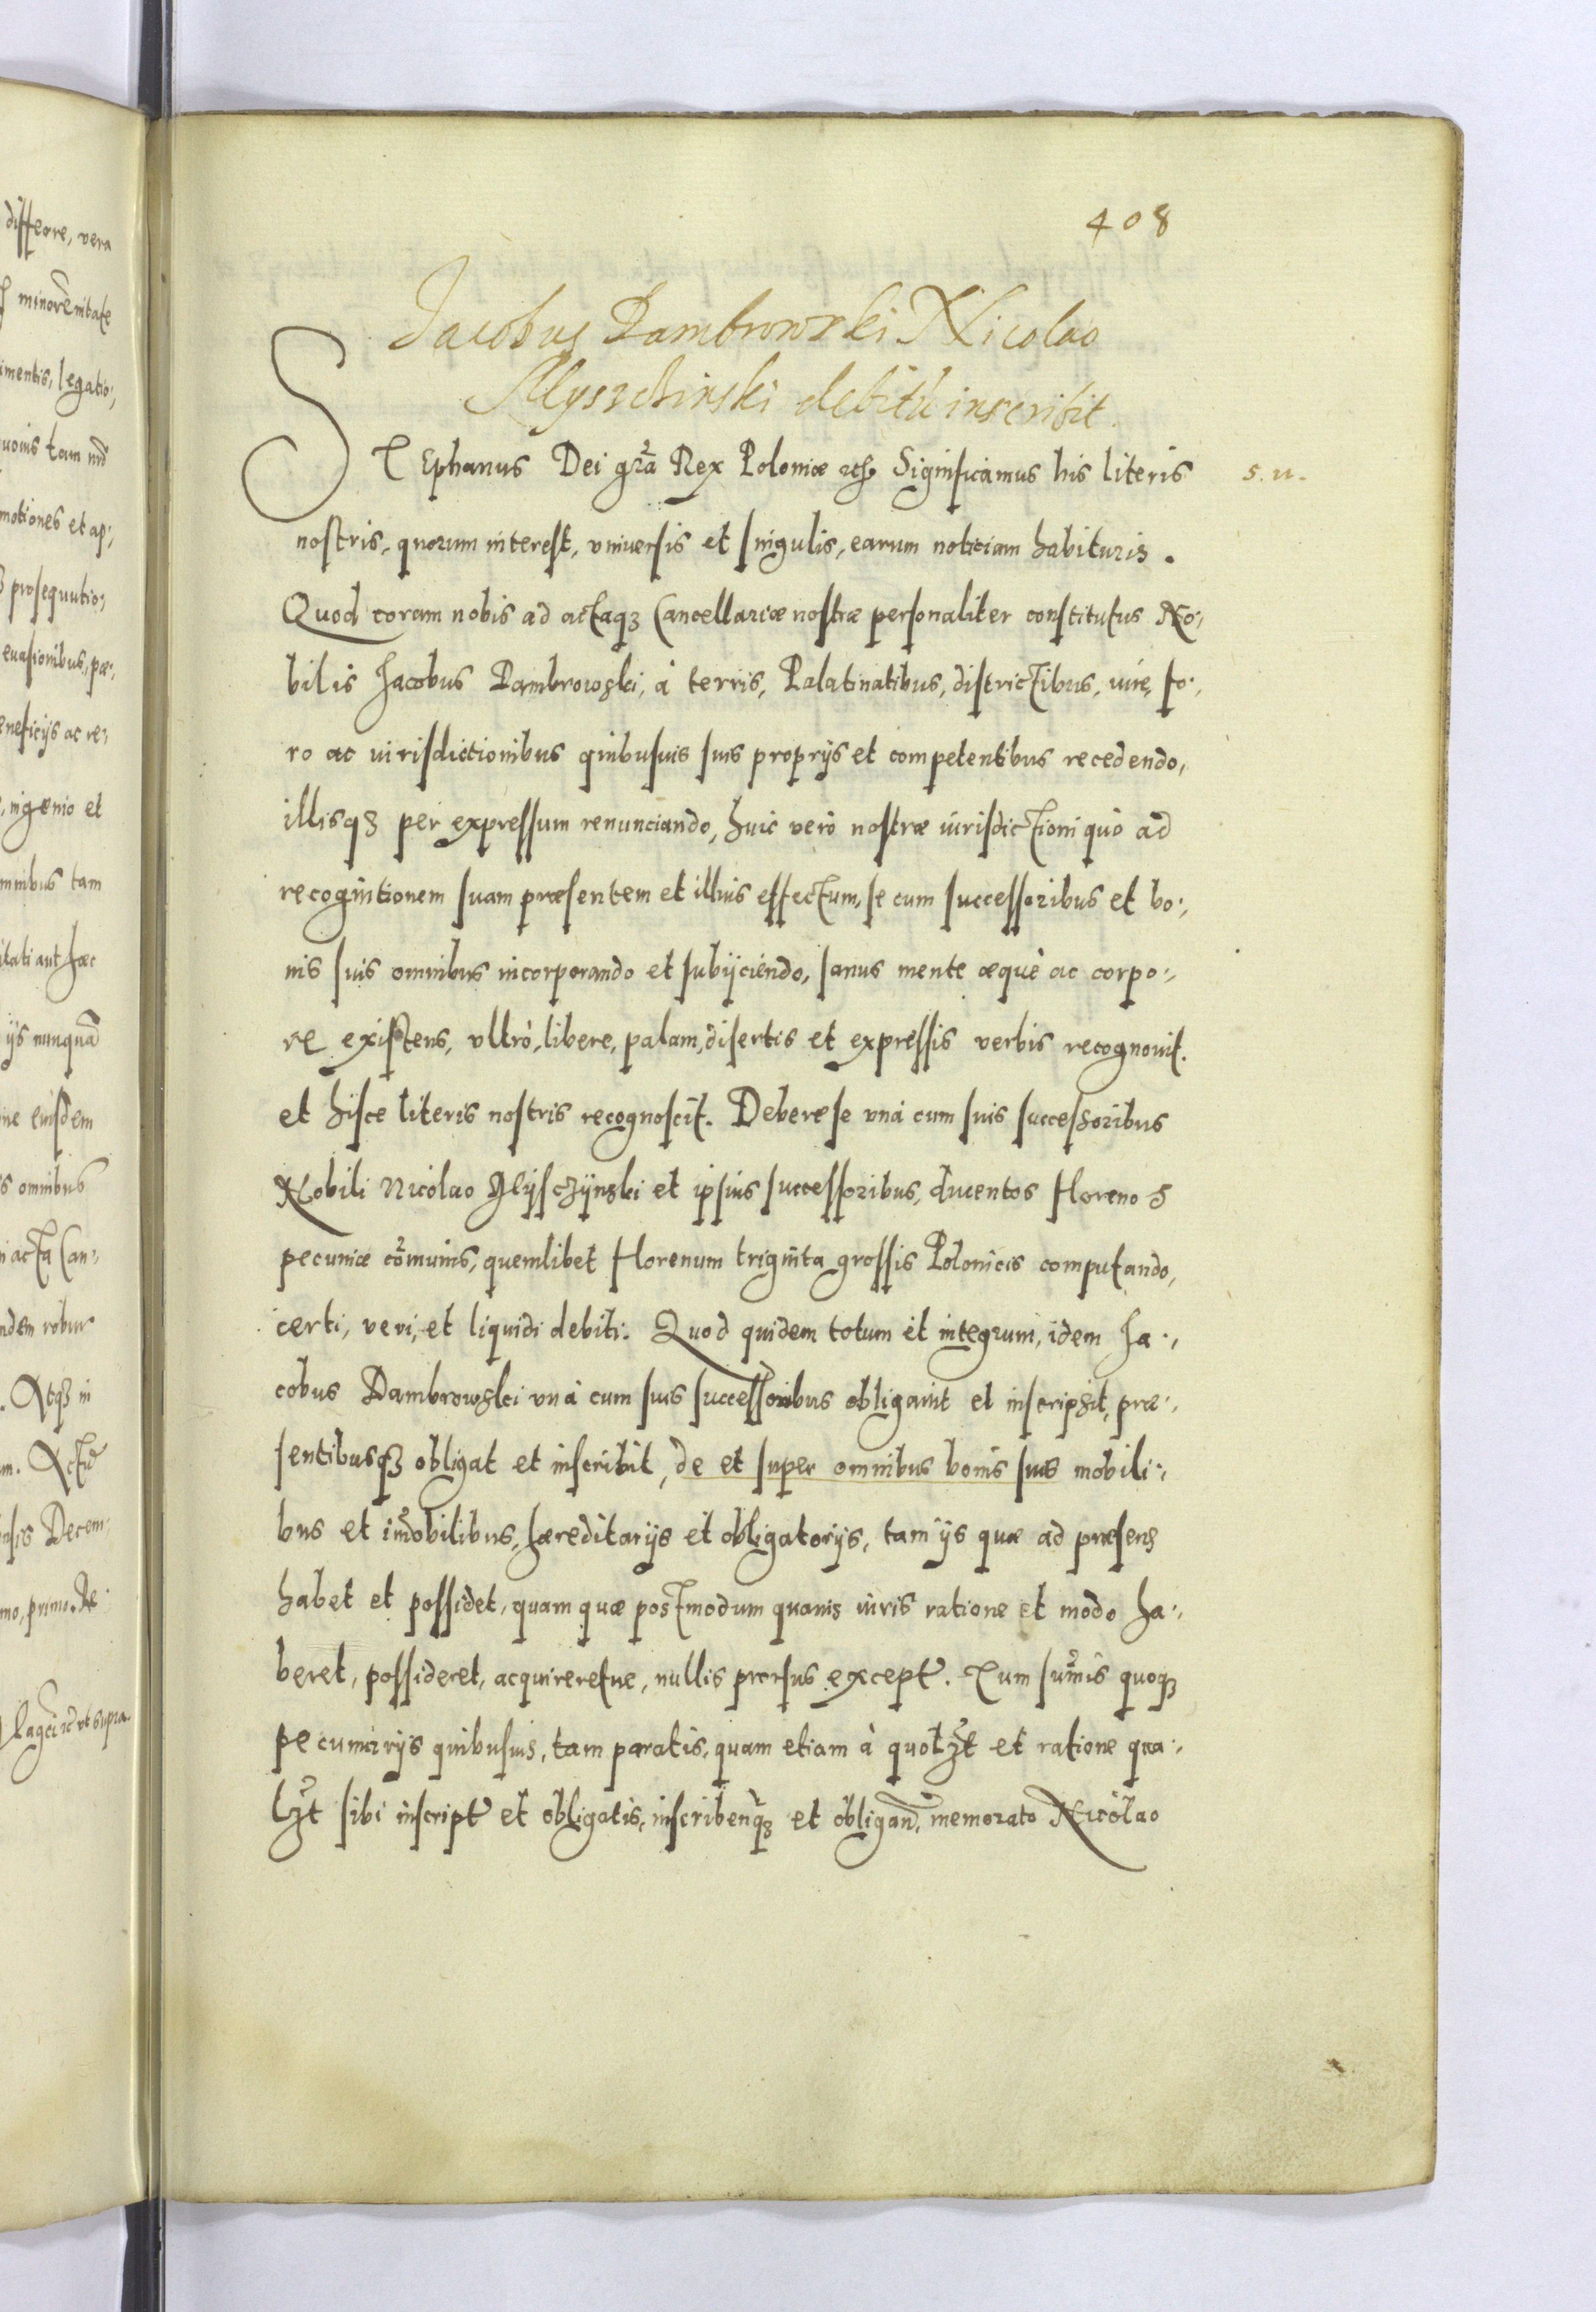 408
Jacobus Dambrowski Nicolao
debitū inscribit.
STEphanus Dei gr̃a Rex Poloniæ etc̃ Significamus his literis
s. n.
nostris, quorum interest, vniuersis et singulis, earum noticiam habituris.
Quod coram nobis ad actaq3 Cancellariæ nostræ personaliter constitutus No:,
bilis Jacobus Dambrowski, à terris, Palatinatibus, districtibus, iure, fo:,
ro ac iurisdictionibus quibusuis suis proprijs et competentibus recedendo,
illisq3 per expressum renunciando, huic verò nostræ iurisdictioni quò ad
recognitionem suam præsentem et illius effectum, se cum successoribus et bo:,
nis suis omnibus incorporando et subijciendo, sanus mente æquè ac corpo:,
re existens, vltrò, libere, palam, disertis et expressis verbis recognouit.
et hisce literis nostris recognoscit. Debere se vnà cum suis successoribus
Nobili Nicolao et ipsius successoribus, ducentos florenos
pecuniæ cõmunis, quemlibet florenum triginta grossis Polonicis computando,
certi, veri, et liquidi debiti. Quod quidem totum et integrum, idem Ja:,
cobus Dambrowski vnà cum suis successoribus obligauit et inscripsit, præ:,
sentibusq3 obligat et inscribit, de et super omnibus bonis suis mobili:,
bus et im̃obilibus, hæreditarijs et obligatorijs, tam ijs quæ ad præsens
habet et possidet, quam quæ postmodum quouis iuris ratione et modo ha:,
beret, possideret, acquireretue, nullis prorsus except̃. Tum sum̃is quoq3
pecuniarijs quibusuis, tam paratis, quam etiam à quol3t et ratione qua:,
l3t sibi inscript̃ et obligatis, inscribenq̃3 et obligan̄d, memorato Nicolao